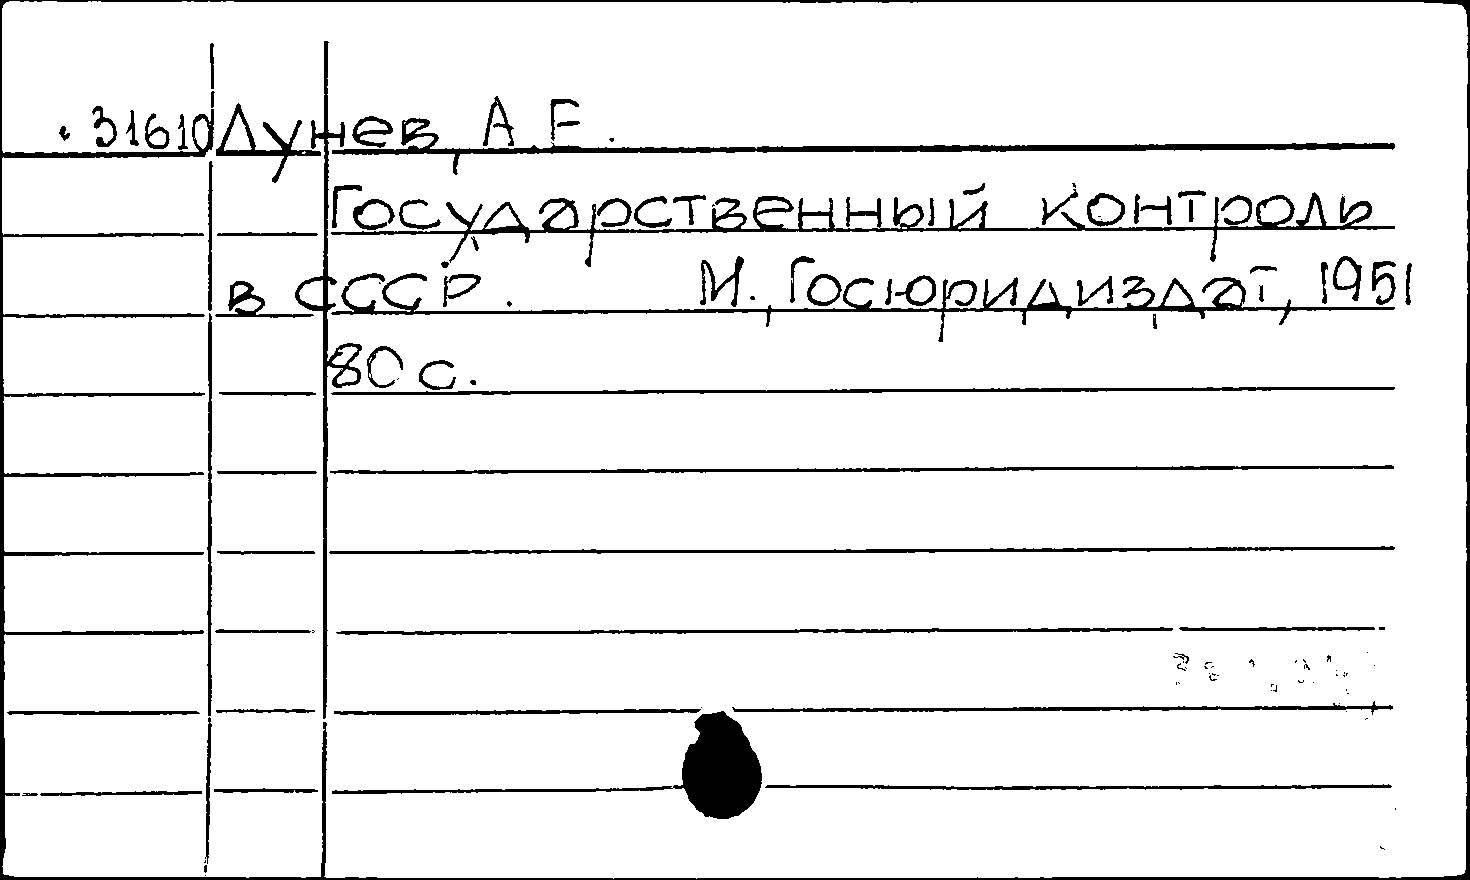 31610 Лунев, А.Е.
Государственный контроль
в СССР. М., Госюридиздат, 1951
80 с.